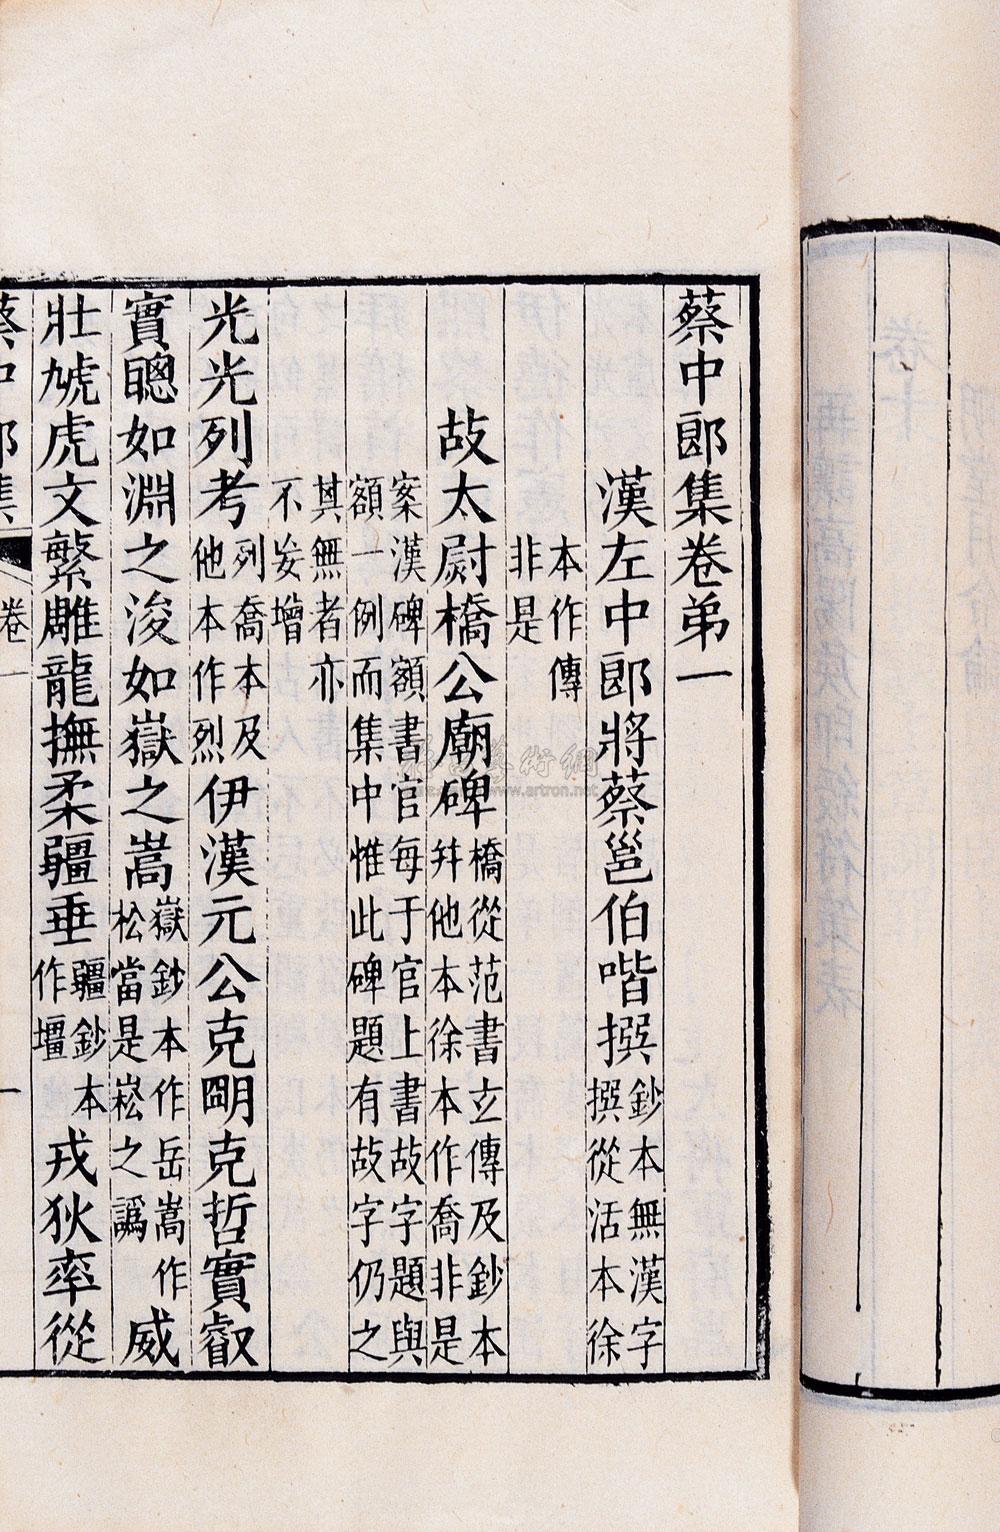 蔡中郎集卷弟一
漢左中郎將蔡邕伯喈撰鈔本無漢字撰從活本徐
本作傳非是
故太尉橋公廟碑橋從范書玄傳及鈔本幷他本徐本作喬非是
案漢碑額書官每于官上書故字題與額一例而集中惟此碑題有故字仍之
其無者亦不妄增
光光列考列喬本及他本作烈伊漢元公克朙克哲實叡
實聰如淵之浚如嶽之嵩嶽鈔本作岳嵩作松當是崧之譌威
壯虓虎文繁雕龍撫柔疆垂疆鈔本作壃戎狄率從
蔡中郎集
卷一
一
www.artron.net